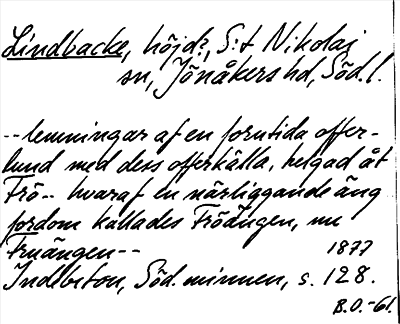 Lindbacke, höjd?, S:t Nikolai
sn, Jönåkers hd, Söd.l.
-- lemningar af en forntida offer-
lund med dess offerkälla, helgad åt
Frö-- hvaraf en närliggande äng
fordom kallades Fröängen, nu
Fruängen-- 1877
Indebetou, Söd. minnen, s. 128.
B.O.-61.